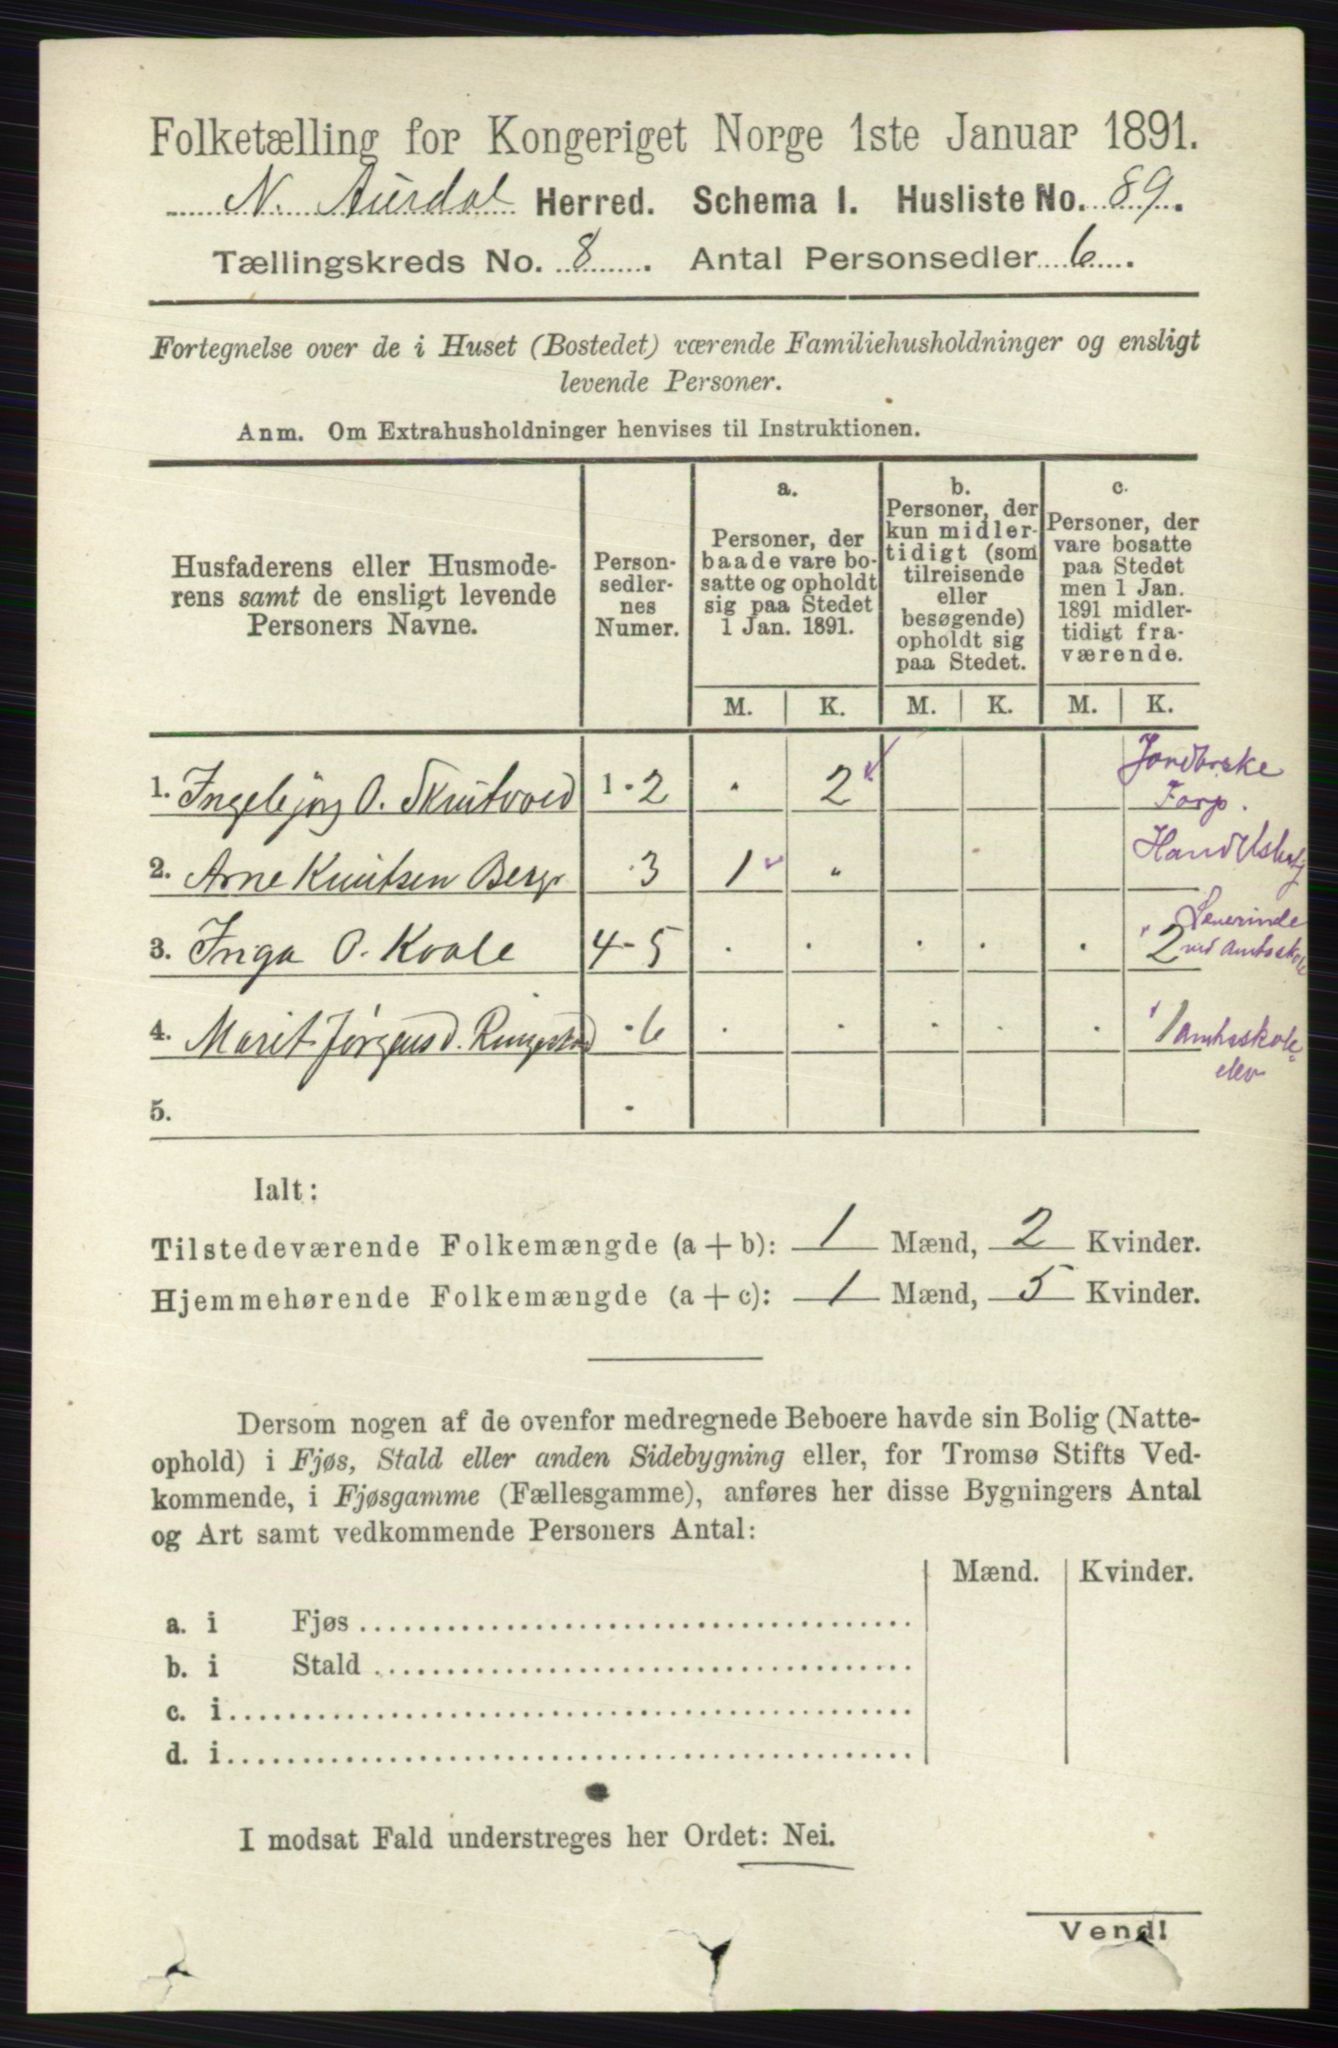 Folketælling for Kongeriget Norge 1ste Januar 1891.
N. Aurdal Herred. Schema I. Husliste No. 89.
Tællingskreds No. 8. Antal Personsedler 6.
Fortegnelse over de i Huset (Bostedet) værende Familiehusholdninger og ensligt
levende Personer.
Anm. Om Extrahusholdninger henvises til Instruktionen.
Husfaderens eller Husmode-
rens samt de ensligt levende
Personers Navne.
Person-
sedler-
nes
Numer.
a.
Personer, der
baade vare bo-
satte og opholdt
sig paa Stedet
1 Jan. 1891.
b.
Personer, der
kun midler-
tidigt (som
tilreisende
eller
besøgende)
opholdt sig
paa Stedet.
c.
Personer, der
vare bosatte
paa Stedet
men 1 Jan.
1891 midler-
tidigt fra-
værende.
M. K. M. K. M. K.
1. Ingebjørg O. 1-2 . 2 Jordbrske
Forp.
2. Arne Knutsen Berge 3 1 "
3. Inga O. Kvale 4-5 . . . . . 2 Lærerinde
ved Amtsskole
4. Marit Jørgensd. Ringestad 6 . . . . . 1 Amtsskole
elev
5. .
Ialt:
Tilstedeværende Folkemængde (a + b): 1 Mænd, 2 Kvinder.
Hjemmehørende Folkemængde (a + c): 1 Mænd, 5 Kvinder.
Dersom nogen af de ovenfor medregnede Beboere havde sin Bolig (Natte-
ophold) i Fjøs, Stald eller anden Sidebygning eller, for Tromsø Stifts Ved-
kommende, i Fjøsgamme (Fællesgamme), anføres her disse Bygningers Antal
og Art samt vedkommende Personers Antal:
Mænd. Kvinder.
a. i Fjøs
b. i Stald
c. i
d. i
I modsat Fald understreges her Ordet: Nei.
Vend!